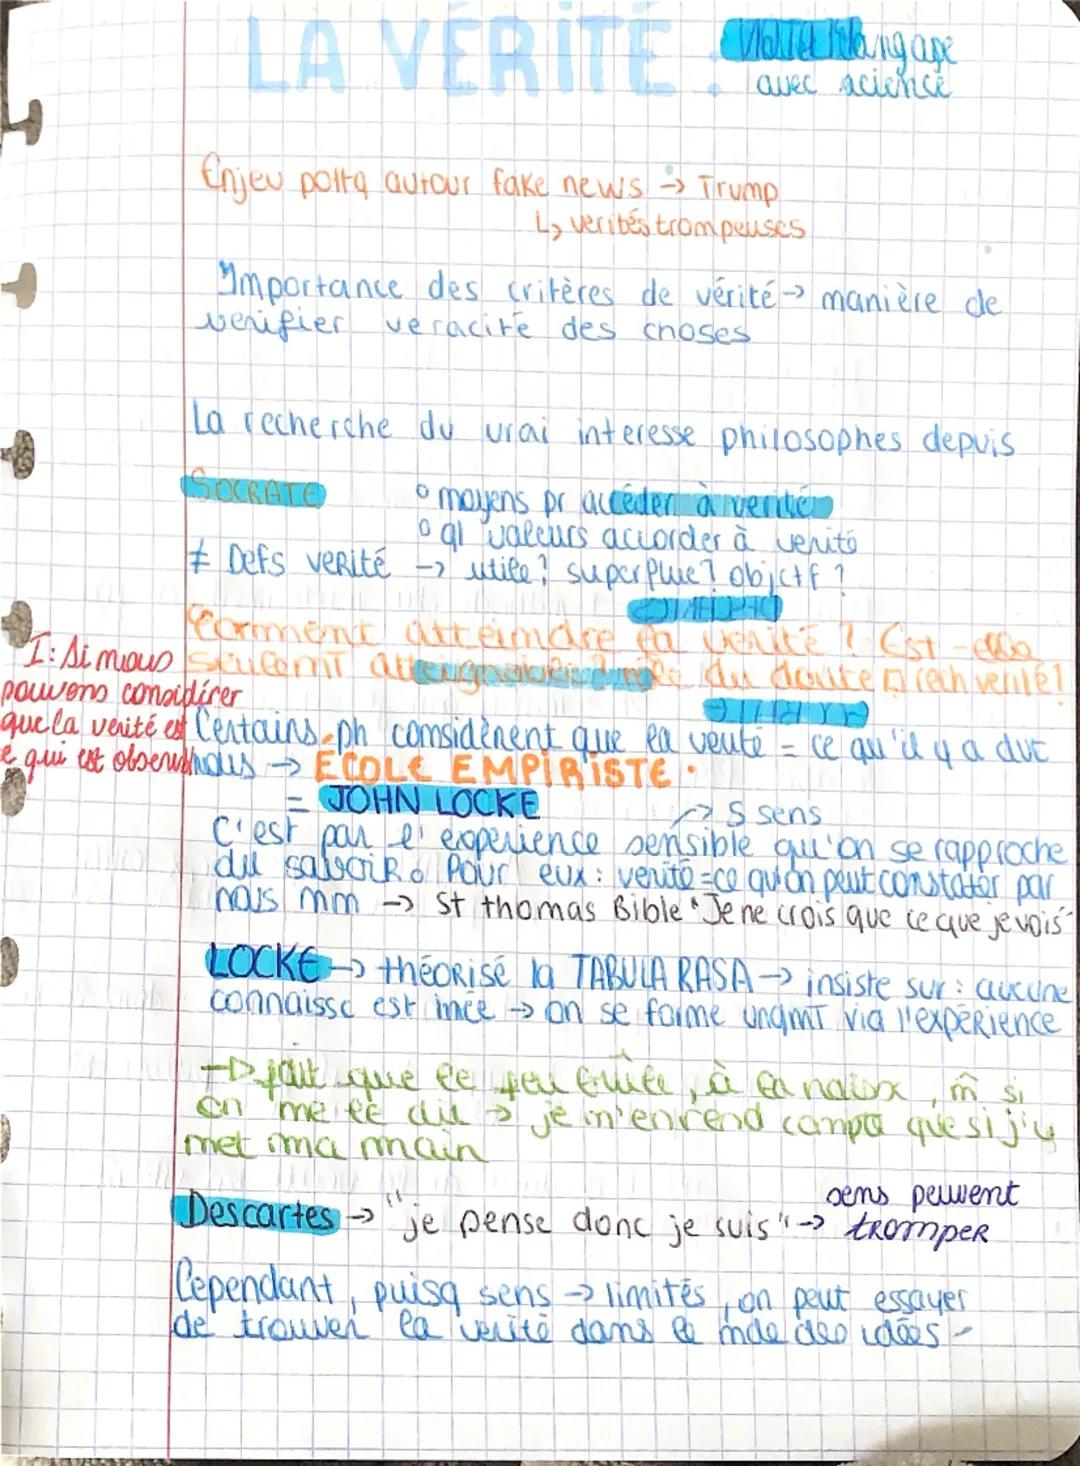 LA VÉRITÉ : langage
avec science
Enjeu poltq autour fake news → Trump
↳ verités trompeuses
Importance des critères de vérité → manière de
verifier veracité des choses
La recherche du vrai interesse philosophes depuis
SOCRATE
° moyens pr accéder à verité
° ql valeurs accorder à verité
≠ Defs verité → utile? superflue? objctf?
Comment atteindre la verité ? Est-elle
seulemt du doute rech verité!
I: Si nous
pouvons considérer
que la verité est
ce qui est observable
Certains ph considèrent que la verité = ce qu'il y a dvt
nous → ÉCOLE EMPIRISTE.
= JOHN LOCKE
→ 5 sens
C'est par l'experience sensible qu'on se rapproche
du savoir. Pour eux : verité = ce qu'on peut constater par
nous mm → St thomas Bible "Je ne crois que ce que je vois"
LOCKE → théorisé la TABULA RASA → insiste sur : aucune
connaissc est inée → on se forme unqmt via l'expérience
→ fait que le feu brûle, à la naissx, m̂ si
on me le dit → je m'en rend compte que si j'y
met ma main
Descartes → "je pense donc je suis" → sens peuvent
tromper
Cependant, puisq sens → limités, on peut essayer
de trouver la verité dans le mde des idées -